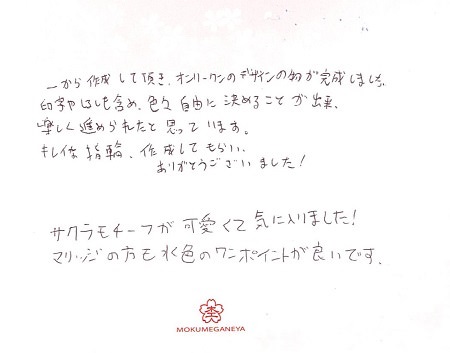 一から作成して頂き、オンリーワンのデザインの物が完成しました。
印字やはしも含め、色々自由に決めることが出来、
楽しく進められたと思っています。
キレイな指輪、作成してもらい、
ありがとうございました!
サクラモチーフが可愛くて気に入りました!
マリッジの方も水色のワンポイントが良いです。
MOKUMEGANEYA